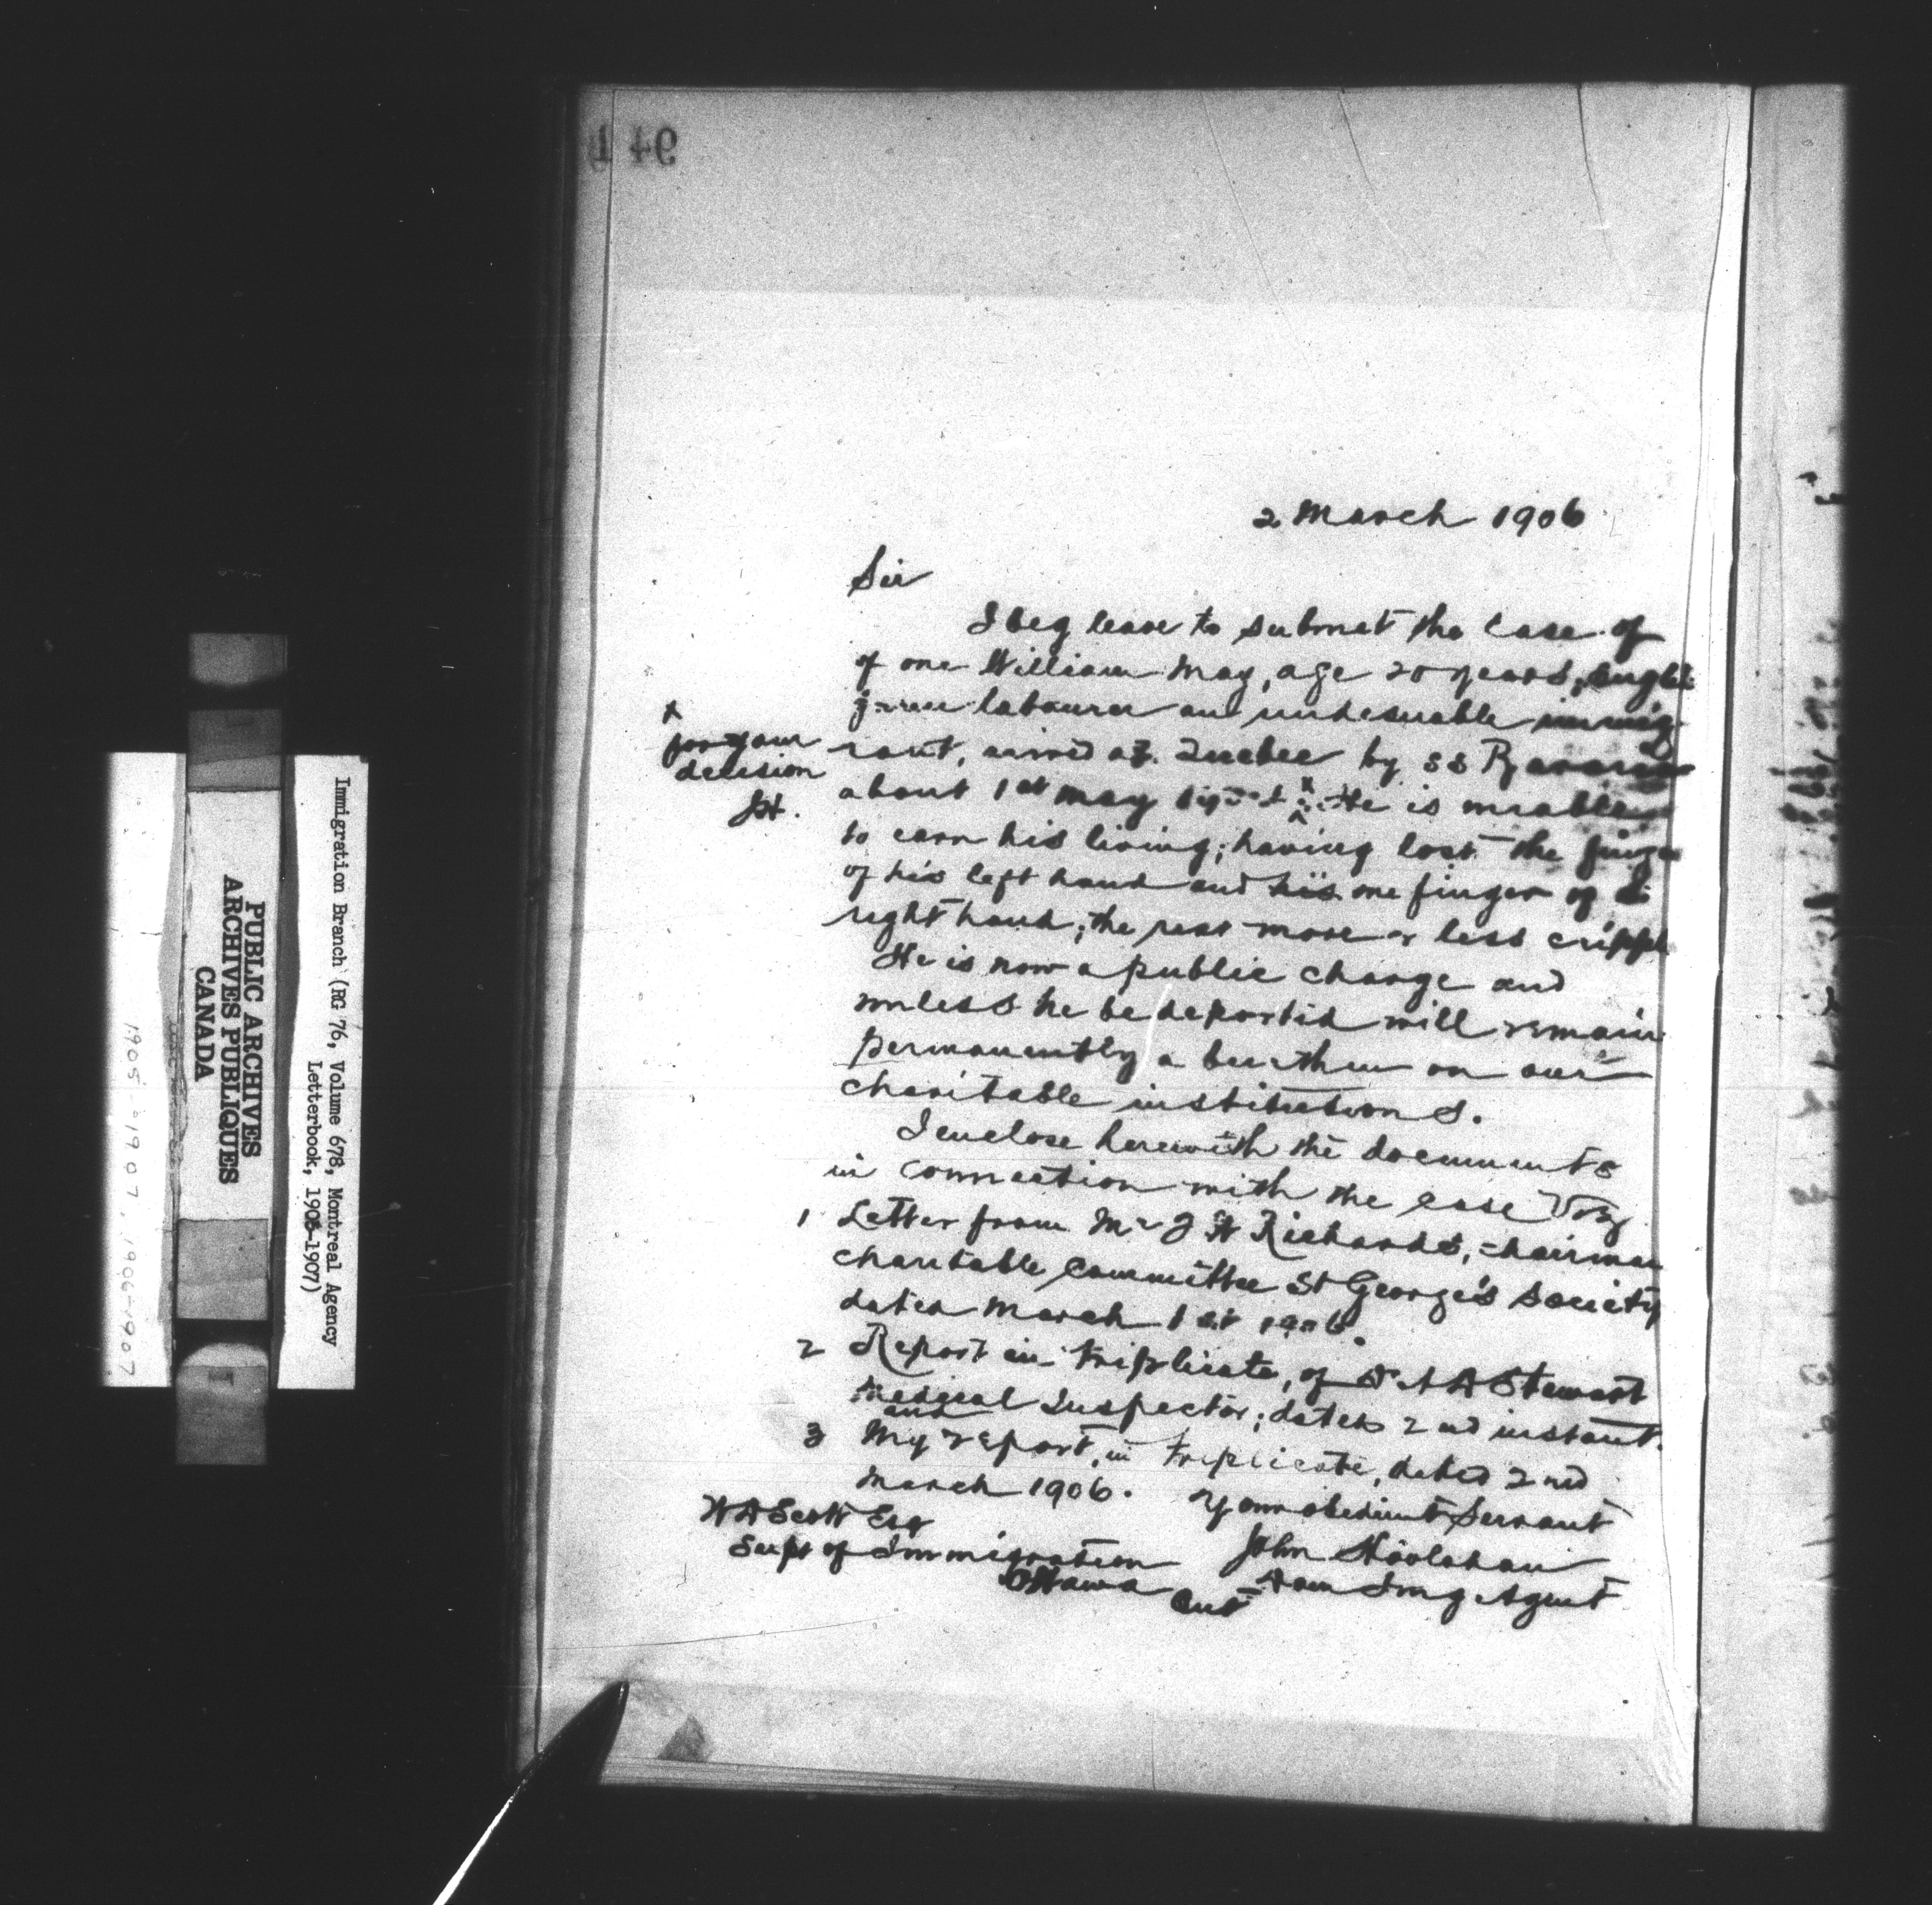 94
2 March 1906
Sir
I beg leave to submit the case of
of one William May, age 20 years,
labourer an undesirable immig
rant, arrived at Quebec by SS
about 1st May He is unable
to earn his living; having lost the finger
of his left hand and his one finger of
right hand; the rest more or less crippl
He is now a public charge and
unless he be deported will remain
permanently a burthen on our
charitable institutions.
I enclose herewith the documents
in connection with the case Viz
1 Letter from Mr J H Richards, chairman
charitable Committee St George's Society
dated March 1st 1906.
2 Report in triplicate, of Dr A A Stewart
Medical Inspector; dated 2nd instant.
and
3 My report, in triplicate, dated 2nd
March 1906. Your obedient Servant
W A Scott Esq
John Hoolahan
Supt of Immigration
Dom Img Agent
Ottawa Ont
x
for your
decision
JH.
Immigration Branch (RG 76, Volume 678, Montreal Agency
Letterbook, 1905-1907)
PUBLIC ARCHIVES
ARCHIVES PUBLIQUES
CANADA
1905-1907, 1906-1907